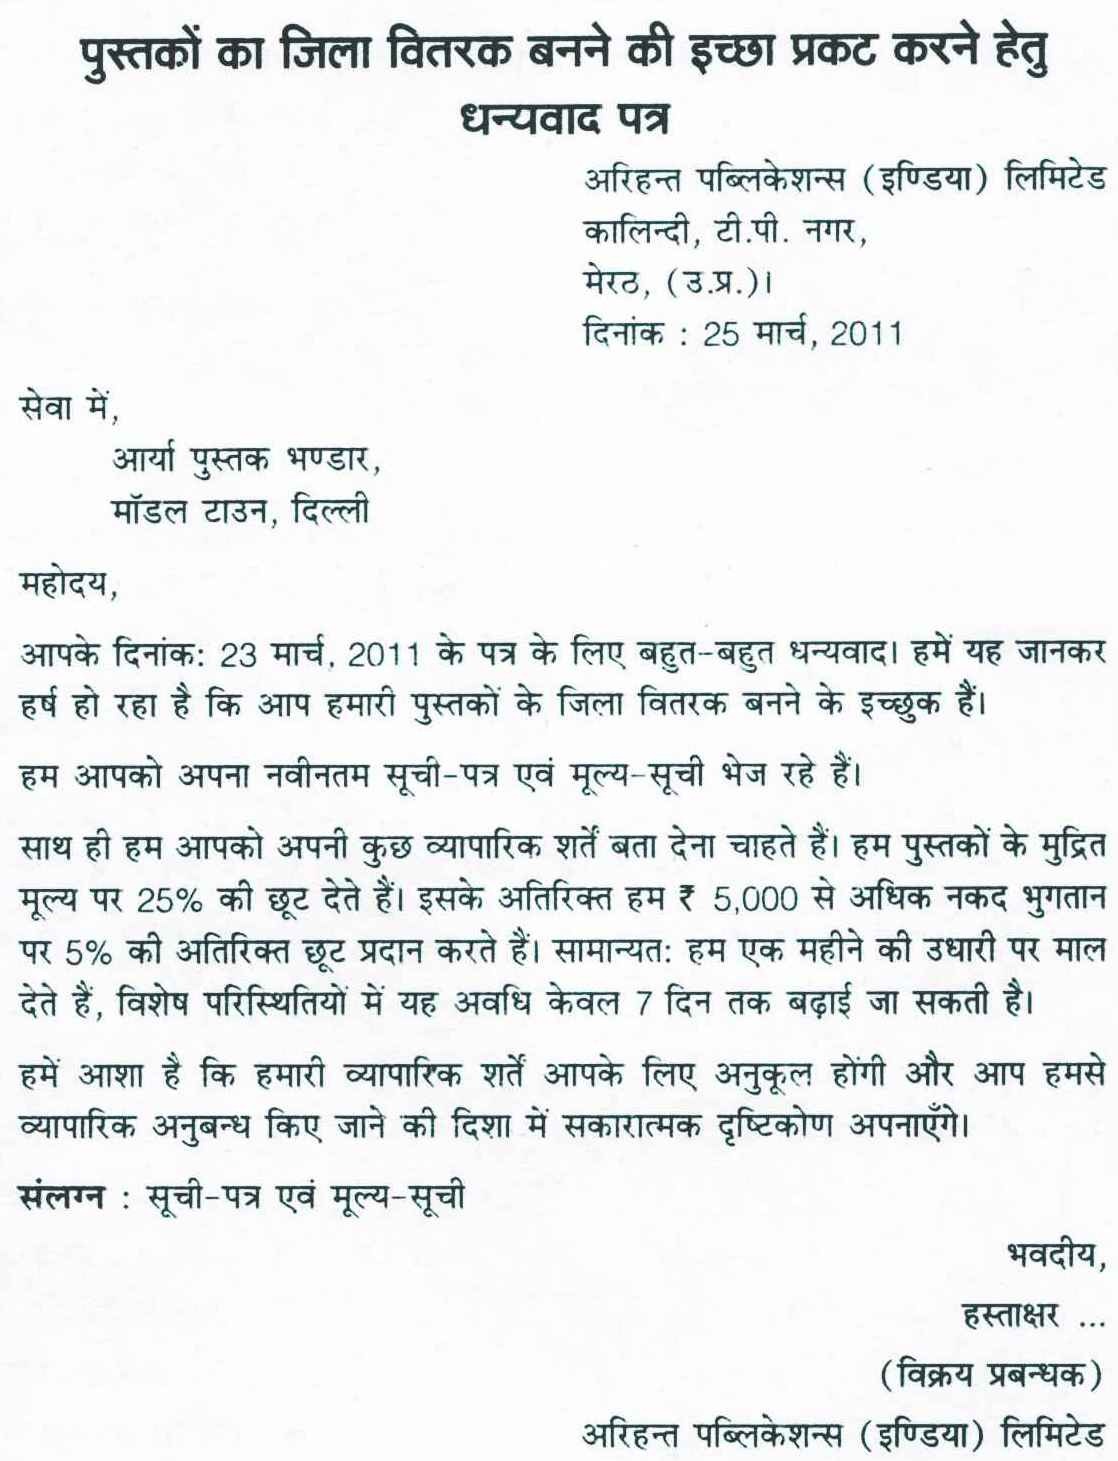 पुस्तकों का जिला वितरक बनने की इच्छा प्रकट करने हेतु
धन्यवाद पत्र
अरिहन्त पब्लिकेशन्स (इण्डिया) लिमिटेड
कालिन्दी, टी.पी. नगर,
मेरठ, (उ.प्र.)।
दिनांक : 25 मार्च, 2011
सेवा में,
आर्या पुस्तक भण्डार,
मॉडल टाउन, दिल्ली
महोदय,
आपके दिनांक: 23 मार्च, 2011 के पत्र के लिए बहुत-बहुत धन्यवाद। हमें यह जानकर
हर्ष हो रहा है कि आप हमारी पुस्तकों के जिला वितरक बनने के इच्छुक हैं।
हम आपको अपना नवीनतम सूची-पत्र एवं मूल्य-सूची भेज रहे हैं।
साथ ही हम आपको अपनी कुछ व्यापारिक शर्तें बता देना चाहते हैं। हम पुस्तकों के मुद्रित
मूल्य पर 25% की छूट देते हैं। इसके अतिरिक्त हम ₹ 5,000 से अधिक नकद भुगतान
पर 5% की अतिरिक्त छूट प्रदान करते हैं। सामान्यत: हम एक महीने की उधारी पर माल
देते हैं, विशेष परिस्थितियों में यह अवधि केवल 7 दिन तक बढ़ाई जा सकती है।
हमें आशा है कि हमारी व्यापारिक शर्तें आपके लिए अनुकूल होंगी और आप हमसे
व्यापारिक अनुबन्ध किए जाने की दिशा में सकारात्मक दृष्टिकोण अपनाएँगे।
संलग्न : सूची-पत्र एवं मूल्य-सूची
भवदीय,
हस्ताक्षर ...
(विक्रय प्रबन्धक)
अरिहन्त पब्लिकेशन्स (इण्डिया) लिमिटेड